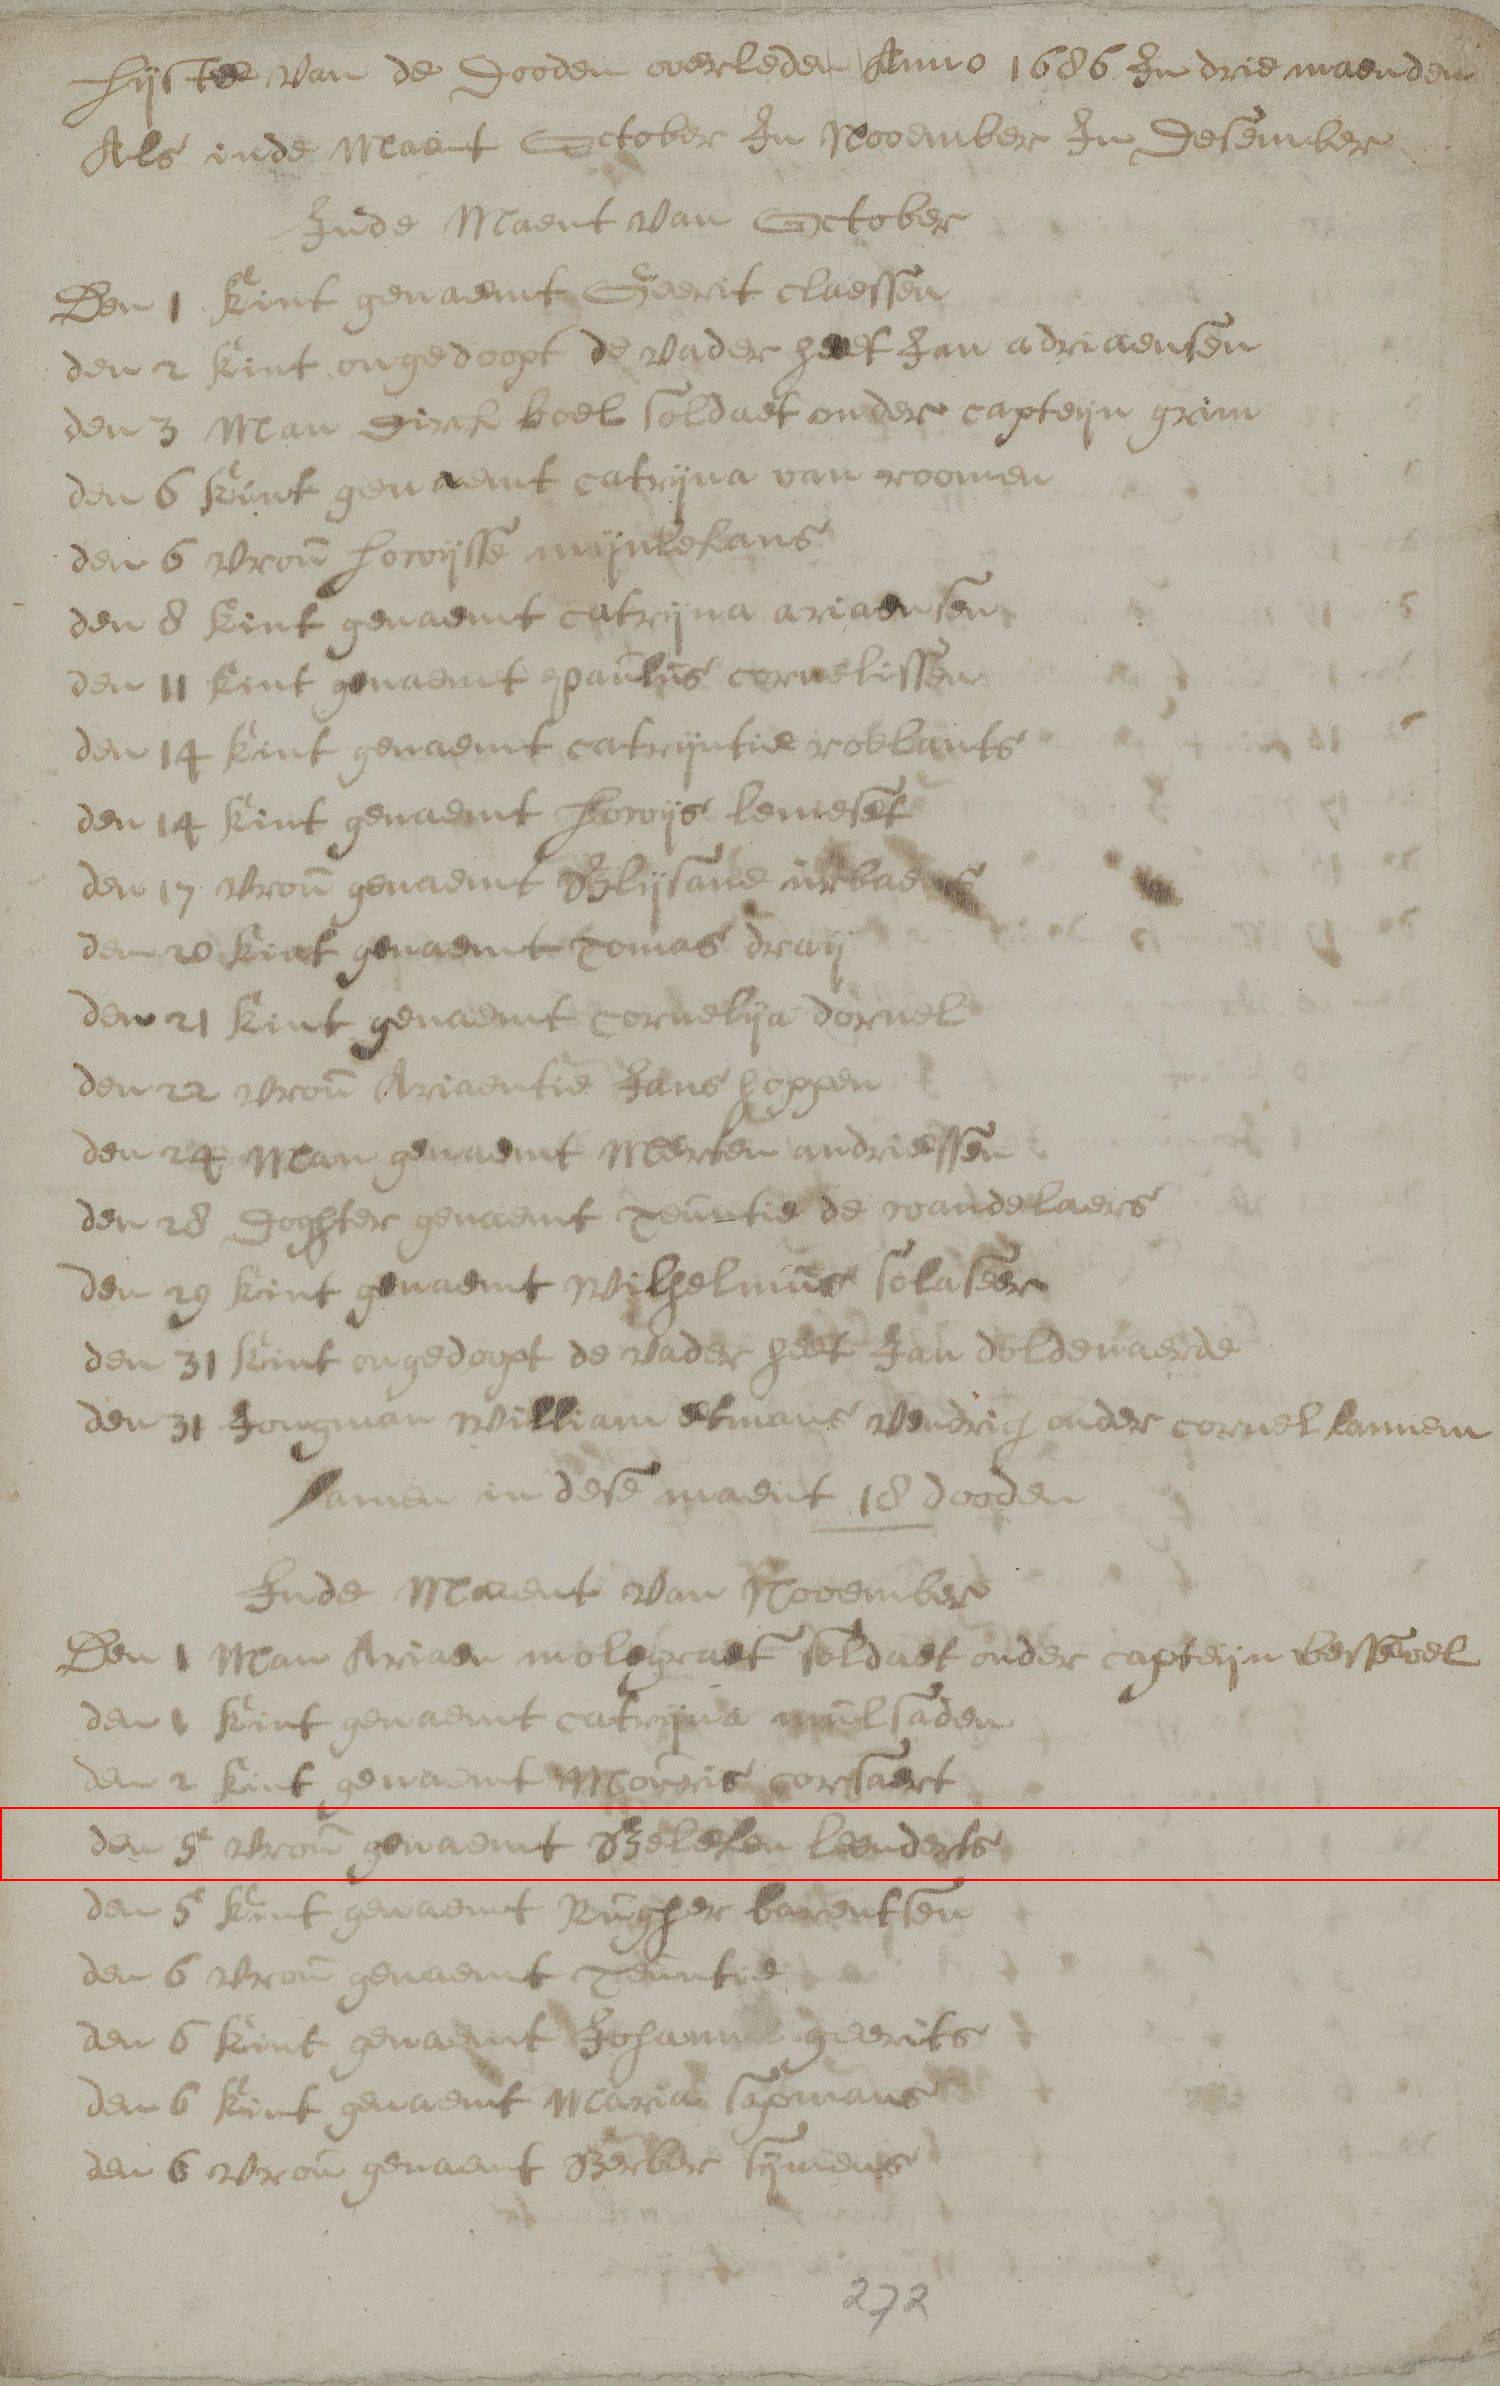 Lijste van de Dooden overleden Anno 1686 In drie maenden
Als inde Maent October In November In Desember
Inde Maent van October
Den 1 Kint genaemt Geerit claessen
den 2 Kint ongedoopt de vader heet Jan adriaensen
den 3 Man Dirck boel soldaet onder capteijn grim
den 6 Kint genaemt catrijna van roomen
den 6 vrou lowijsse mijnlekans
den 8 Kint genaemt catrijna ariaensen
den 11 Kint genaemt paulus cornelissen
den 14 Kint genaemt catrijntie roelants
den 14 Kint genaemt lowijs lemeset
den 17 vrou genaemt Blijsane urbaens
den 20 Kint genaemt Tomas draij
den 21 Kint genaemt cornelija dornel
den 22 vrou Ariaentie Jans hoppen
den 24 Man genaemt Merten andriessen
den 28 Doghter genaemt Teuntie de wandelaers
den 29 Kint genaemt wilhelmus solaseer
den 31 Kint ongedoopt de vader heet Jan doldenaerde
den 31 Jongman william etmans vendrig onder cornel lannem
samen in dese maent 18 dooden
Inde Maent van November
Den 1 Man Ariaen molegraet soldaet onder capteijn bessewel
den 1 Kint genaemt catrijna mulsaden
den 2 Kint genaemt Mourris corsaert
den 5e vrou genaemt Beleken leenderts
den 5e Kint genaemt Rugher barentsen
den 6 vrou genaemt Teuntie
den 6 Kint genaemt Johann geerits
den 6 Kint genaemt Maria sapmans
den 6 vrou genaemt Berber sijmens
272